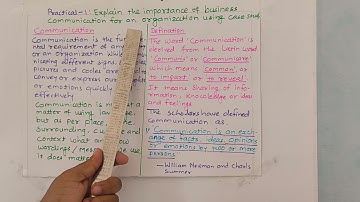 Practical-1: Explain the importance of business
communication for an organization using case study
Communication
Communication is the fu
ntal requirement of any
or an organization while
nicating different signs,
pictures and codes are
conveyed to express our
or emotions quickly
effectively
Communication is not a
matter of using law
but as per place, the
surrounding, cu e and
context what and how
wordings/messages we use
it does matter
Definition
The word 'Communication' is
derived from the Latin word
'Communis' or 'Communicare'
which means 'common', or
to impart or to reveal
It means sharing of info-
rmation, knowledge or ideas
and feelings
The scholars have defined
communication as
"Communication is an exch-
ange of facts, ideas, opinions
or emotions by two or more
persons
— William Newman and Charls
Summer